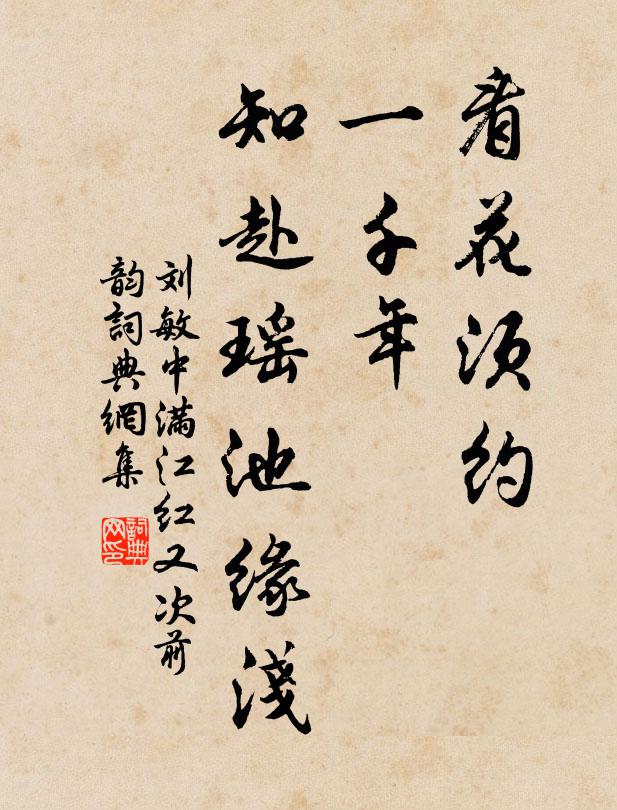 看花须约
一千年
知赴瑶池缘淺
刘敏中满江红又次前
韵詞典網集
詞典
网印